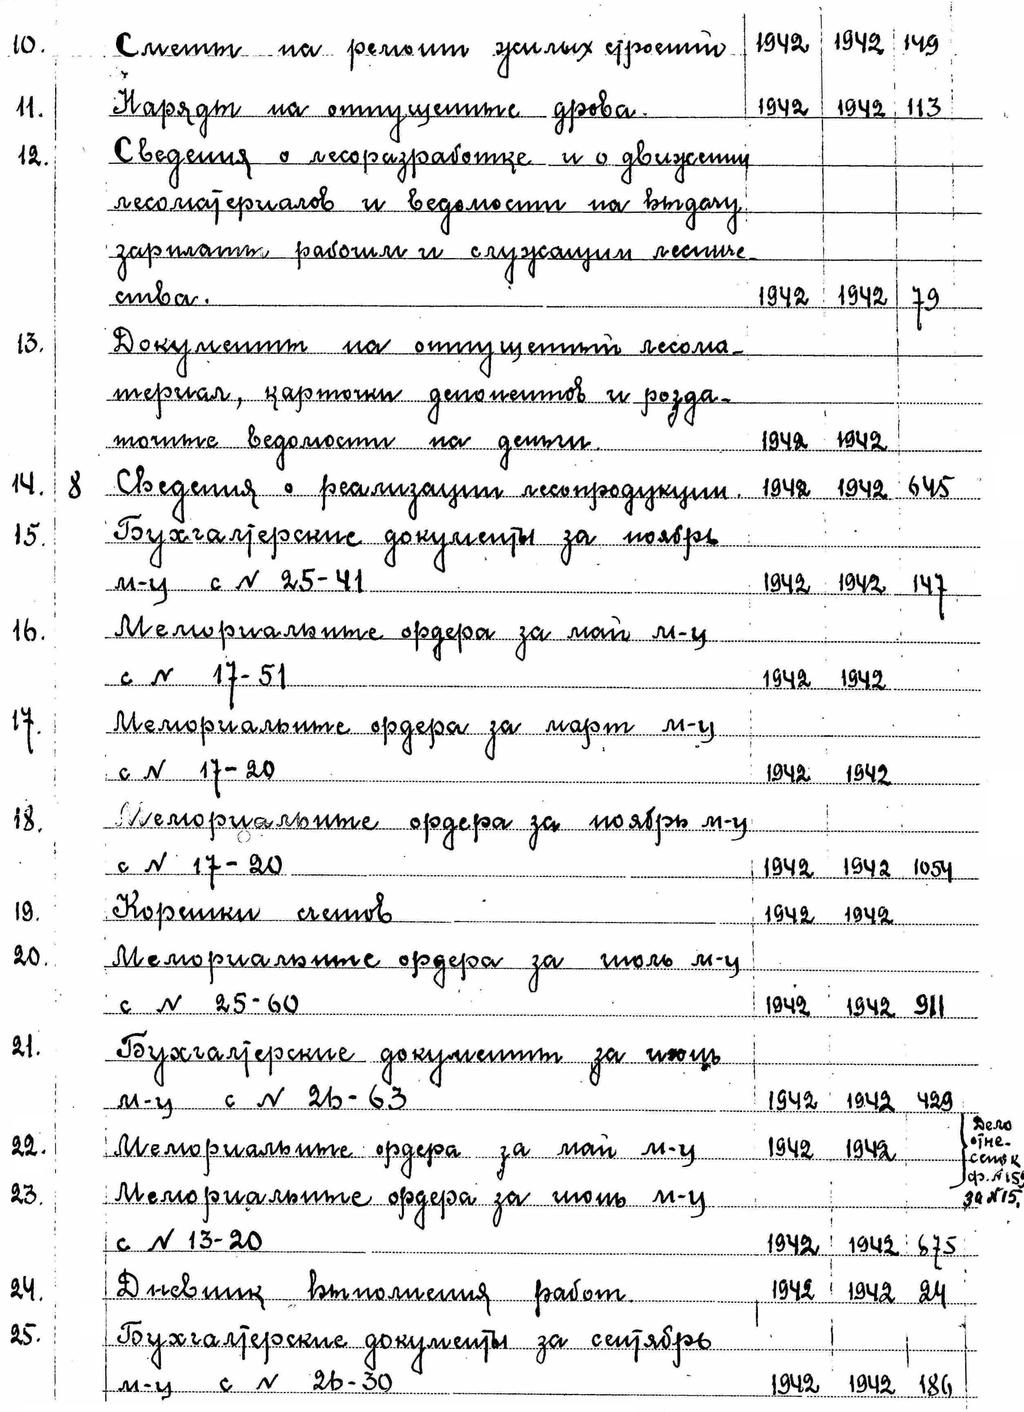 10. Сметы на ремонт жилых строений 1942 1942 149
11. Наряды на отпущенные дрова. 1942 1942 113
12. Сведения о лесоразработке и о движении
лесоматериалов и ведомости на выдачу
зарплаты рабочим и служащим лесниче-
ства. 1942 1942 79
13. Документы на отпущенный лесома-
териал, карточки депонентов и розда-
точные ведомости на деньги. 1942 1942
14. 8 Сведения о реализации лесопродукции. 1942 1942 645
15. Бухгалтерские документы за ноябрь
м-ц с N 25-41 1942 1942 147
16. Мемориальные ордера за май м-ц
с N 17-51 1942 1942
17. Мемориальные ордера за март м-ц
с N 17-20 1942 1942
18. Мемориальные ордера за ноябрь м-ц
с N 17-20 1942 1942 1054
19. Корешки счетов 1942 1942
20. Мемориальные ордера за июль м-ц
с N 25-60 1942 1942 911
21. Бухгалтерские документы за
м-ц с N 26-63 1942 1942 429
22. Мемориальные ордера за май м-ц 1942 1942
Дело
отне-
сен к
ф. N 159
за N 15.
23. Мемориальные ордера за июнь м-ц
с N 13-20 1942 1942 675
24. Дневник выполнения работ. 1942 1942 24
25. Бухгалтерские документы за сентябрь
м-ц с N 26-30 1942 1942 186